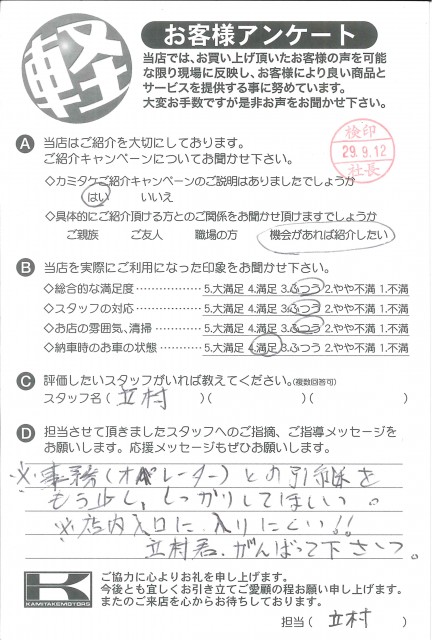 軽
お客様アンケート
当店では、お買い上げ頂いたお客様の声を可能
な限り現場に反映し、お客様により良い商品と
サービスを提供する事に努めています。
大変お手数ですが是非お声をお聞かせ下さい。
A 当店はご紹介を大切にしております。
ご紹介キャンペーンについてお聞かせ下さい。
検印
29.9.12
社長
◇カミタケご紹介キャンペーンのご説明はありましたでしょうか
はい いいえ
◇具体的にご紹介頂ける方とのご関係をお聞かせ頂けますでしょうか
ご親族 ご友人 職場の方 機会があれば紹介したい
B 当店を実際にご利用になった印象をお聞かせ下さい。
◇総合的な満足度 ……………… 5.大満足 4.満足 3.ふつう 2.やや不満 1.不満
◇スタッフの対応 ……………… 5.大満足 4.満足 3.ふつう 2.やや不満 1.不満
◇お店の雰囲気、清掃 ………… 5.大満足 4.満足 3.ふつう 2.やや不満 1.不満
◇納車時のお車の状態 ………… 5.大満足 4.満足 3.ふつう 2.やや不満 1.不満
C 評価したいスタッフがいれば教えてください。(複数回答可)
スタッフ名 ( 立村 )( )( )
D 担当させて頂きましたスタッフへのご指摘、ご指導メッセージを
お願いします。応援メッセージもぜひお願いします。
※事務(オペレーター)との引継を
もう少し、しっかりしてほしい。
※店内入口に、入りにくい!!
立村君、がんばって下さいっ。
K
KAMITAKEMOTORS
ご協力に心よりお礼を申し上げます。
今後とも宜しくお引き立てご愛顧の程お願い申し上げます。
またのご来店を心からお待ちしております。
担当 ( 立村 )